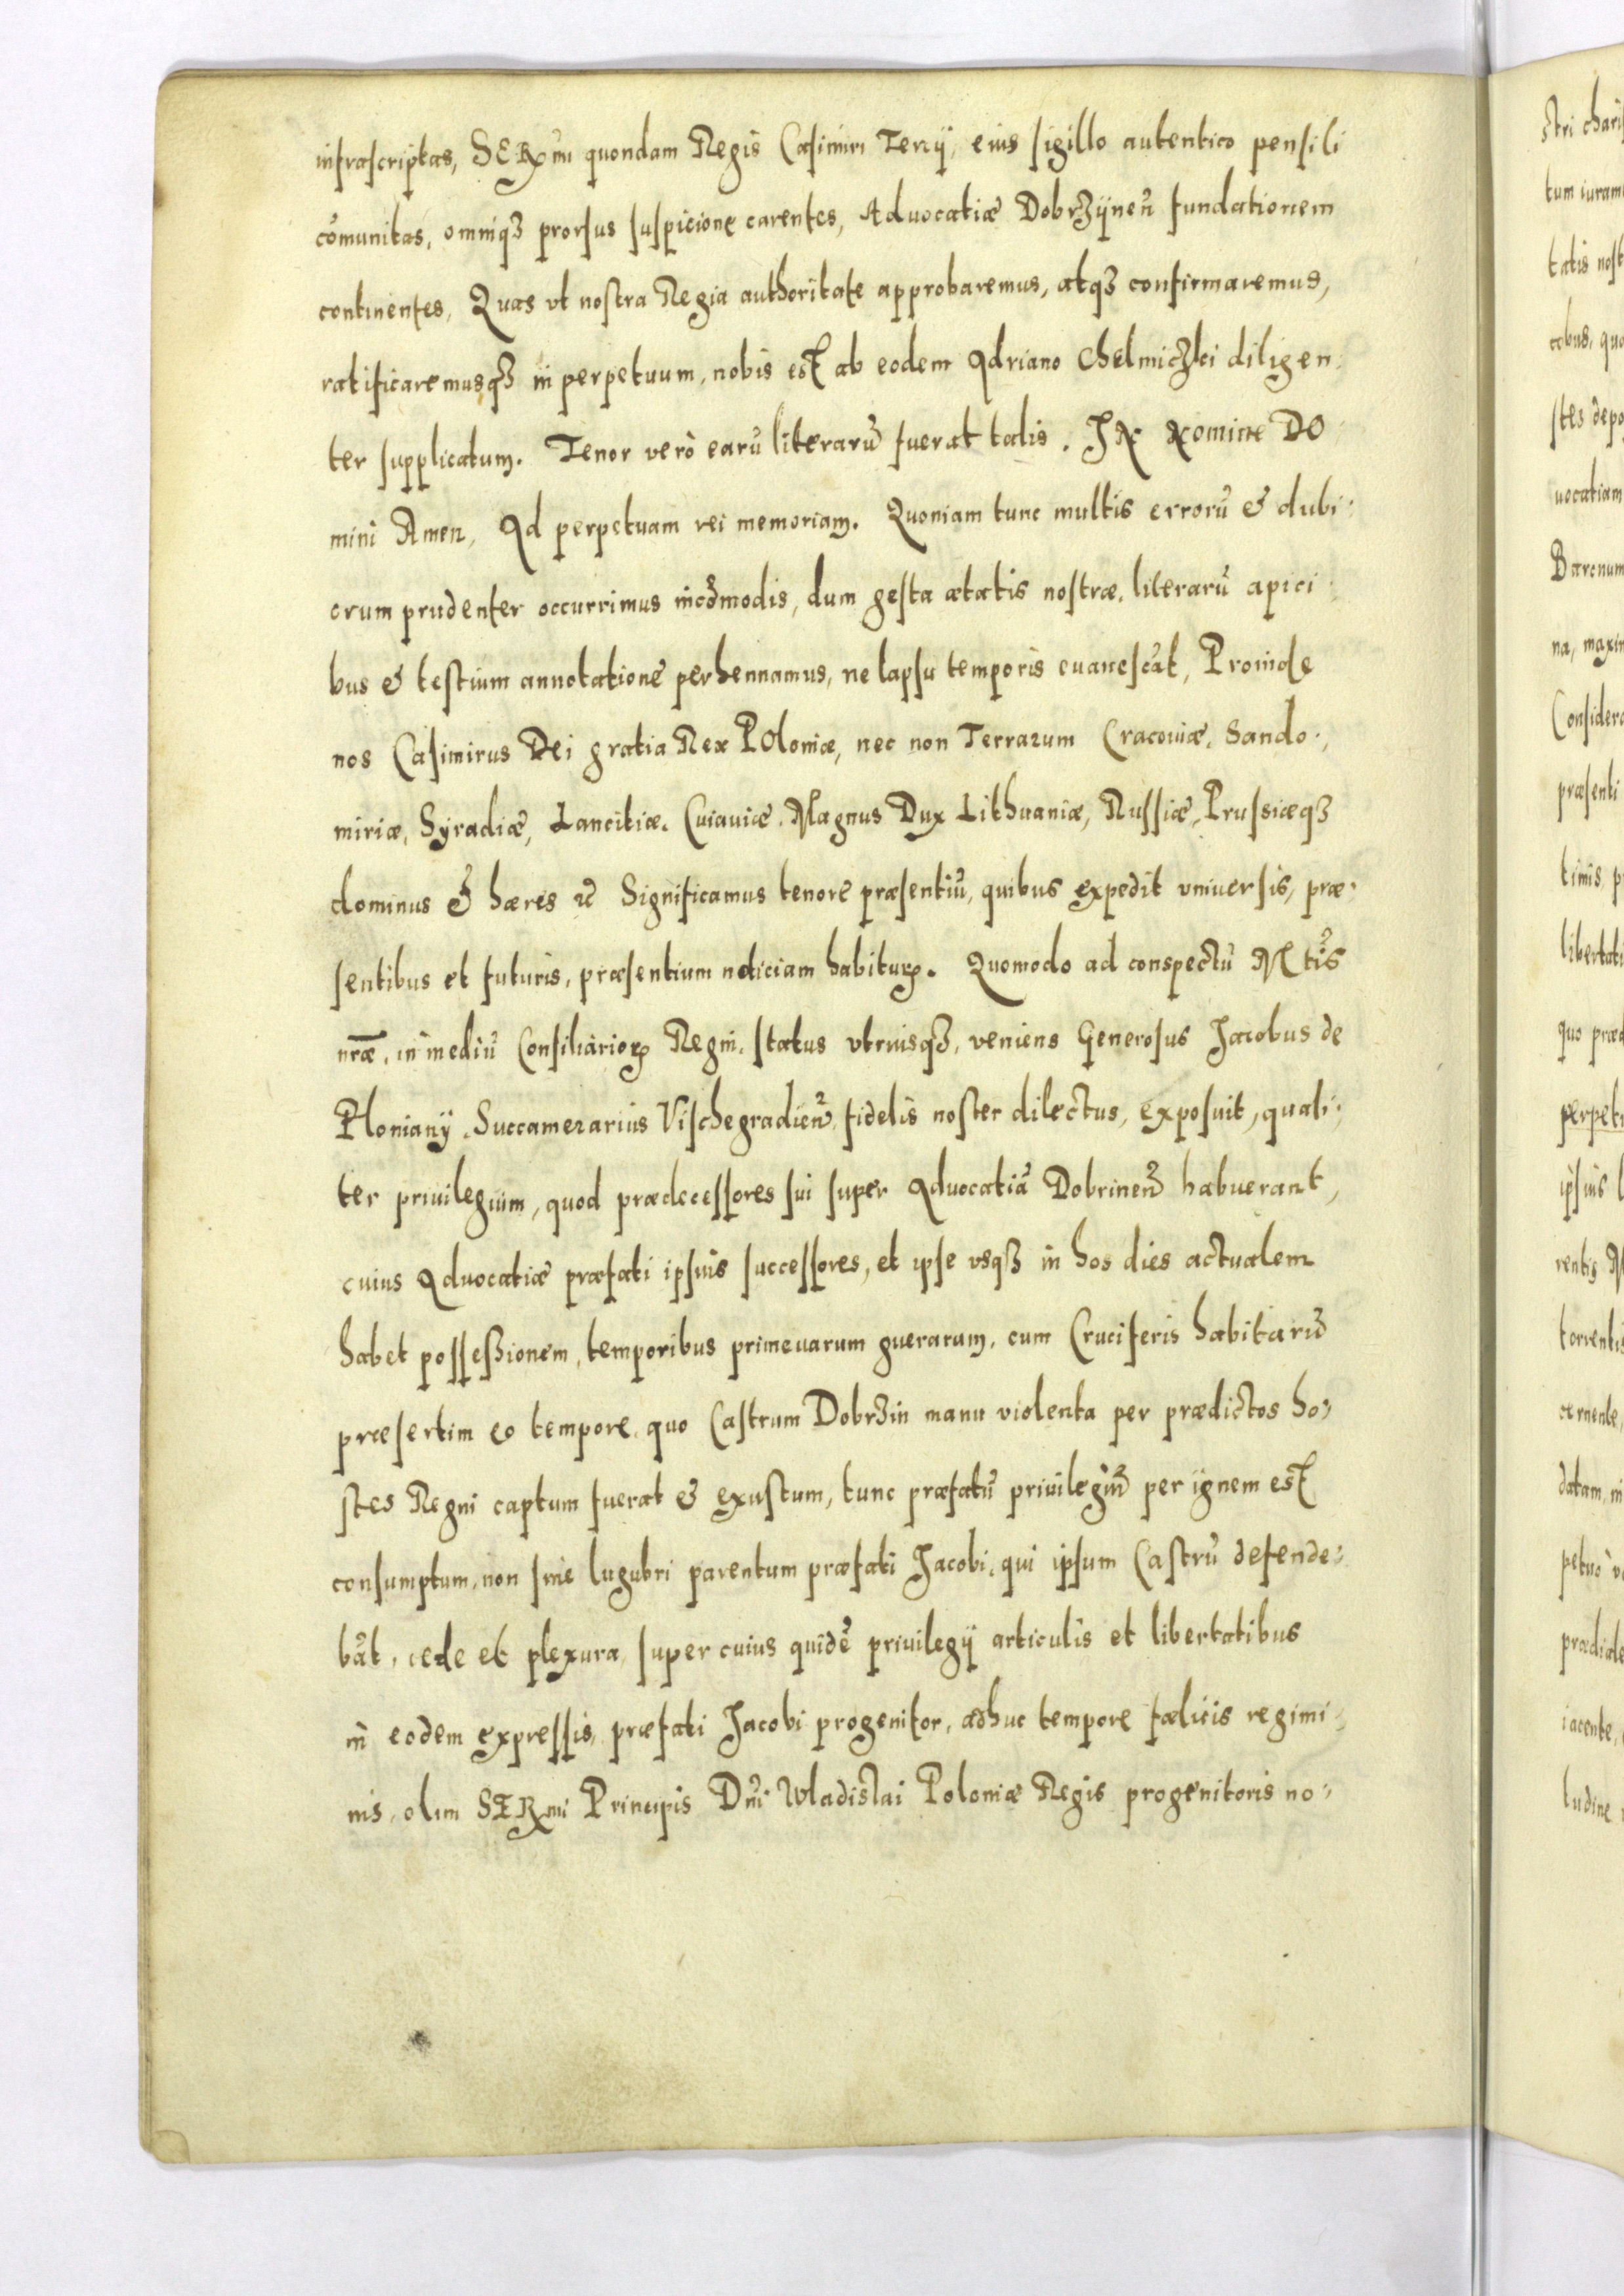 infrascriptas, SERmi quondam Regis Casimiri Terÿ, eius sigillo autentico pensili
cõmunitas, omniqȝ prorsus suspicione carentes, Aduocatiæ Dobrzÿneñ fundationem
continentes, Quas vt nostra Regia authoritate approbaremus, atqȝ confirmaremus,
ratificaremusqȝ in perpetuum, nobis est ab eodem Adriano Chelmiczki diligen
ter supplicatum. Tenor verò earũ literarũ fuerat talis. IN NomiNe DO
mini Amen, Ad perpetuam rei memoriam. Quoniam tunc multis errorũ & dubi:
orum prudenter occurrimus incõmodis, dum gesta ætatis nostræ, literarũ apici:
bus & testium annotatione perhennamus, ne lapsu temporis euanescãt, Proinde
nos Casimirus Dei gratia Rex POloniæ, nec non Terrarum Cracouiæ, Sando:,
miriæ, Syradiæ, Lancitiæ, Cuiauiæ, Magnus Dux Lithuaniæ, Russiæ, Prussiæqȝ
dominus & hæres ꝛc̃ Significamus tenore præsentiũ, quibus expedit vniuersis, præ:
sentibus et futuris, præsentium noticiam habiturꝝ. Quomodo ad conspectũ Mtis
nr̃æ, in mediũ Consiliariorꝝ Regni, status vtriusqȝ, veniens Generosus Jacobus de
Ploniany Succamerarius Vischegradieñ, fidelis noster dilectus, exposuit, quali:
ter priuilegium, quod prædecessores sui super Aduocatiã Dobrineñ habuerant,
cuius Aduocatiæ præfati ipsius successores, et ipse vsqȝ in hos dies actualem
habet possessionem, temporibus primeuarum guerarum, cum Cruciferis habitarũ
præsertim eo tempore, quo Castrum Dobrzin manu violenta per prædictos ho:
stes Regni captum fuerat & exustum, tunc præfatũ priuilegiũ per ignem est
consumptum, non sine lugubri parentum præfati Jacobi, qui ipsum Castrũ defende:
bãt, cede et plexura, super cuius quidẽ priuilegÿ articulis et libertatibus
in eodem expressis, præfati Jacobi progenitor, adhuc tempore fælicis regimi:
nis, olim SERmi Principis Dñi Wladislai Poloniæ Regis progenitoris no: